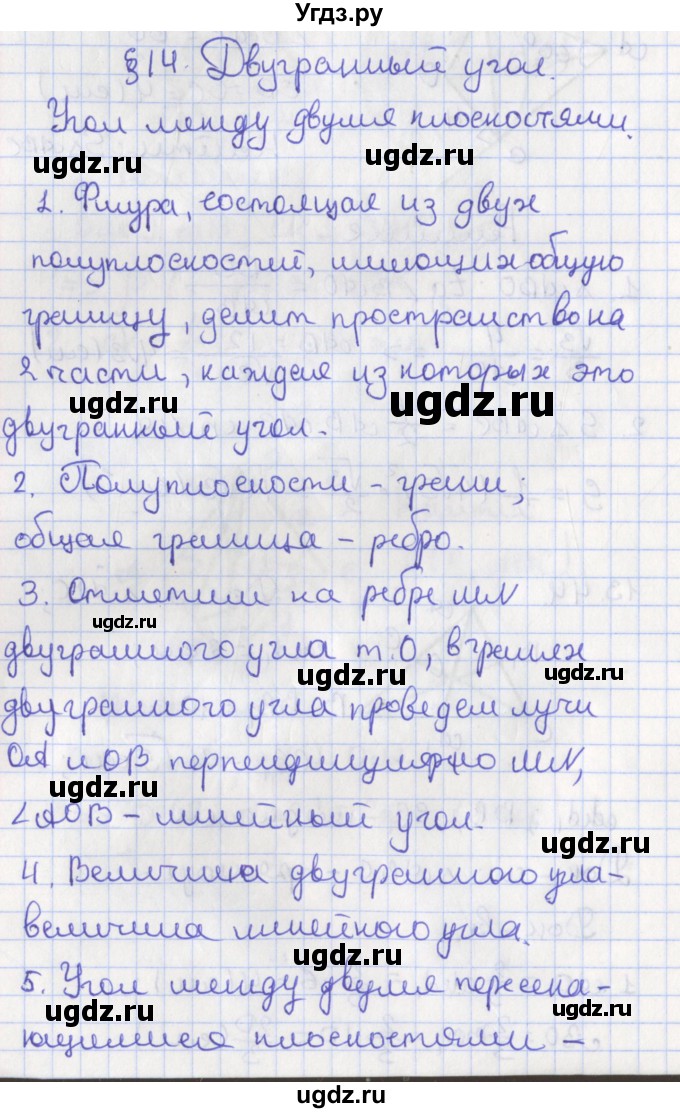 Угдз.ру
§14. Двугранный угол.
Угол между двумя плоскостями.
ugdz.ru
ugdz.ru
1. Фигура, состоящая из двух
полуплоскостей, имеющих общую
границу, делит пространство на
2 части, каждая из которых это
ugdz.ru
ugdz.ru
двугранный угол.
2. Полуплоскости - грани;
общая граница - ребро.
3. Отметим на ребре MN
ugdz.ru
двугранного угла т.О, в гранях
ugdz.ru
двугранного угла проведем лучи
OA и OB перпендикулярно MN,
ugdz.ru
∠AOB - линейный угол.
ugdz.ru
4. Величина двугранного угла-
величина линейного угла.
ugdz.ru
5. Угол между двумя пересека-
ющимися плоскостями -
ugdz.ru
ugdz.ru